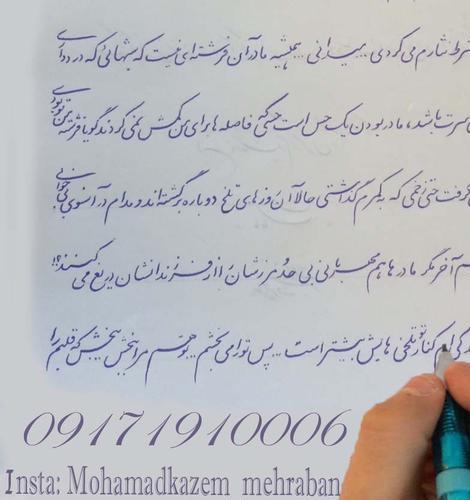 نثارم می کردی ... میدانی ... همیشه مادر آن فرشته ای نیست که شبهایی که در دداری
باشد، مادر بودن یک حس است حسی که فاصله ها برای من کمش نمی کردند گویا فرشته من تو بودی
گرفت حتی زخمی که به کمرم گذاشتی حالا آن روزهای تلخ دوباره برگشته اند و مدام در آنسوی
آخر مگر مادرها هم مهربانی بی حد و مرزشان را از فرزندانشان دریغ می کنند؟!
کنار تو تلخی هایش بیشتر است ... پس تو را می بخشم ... تو هم مرا ببخش که قلبم را
09171910006
Insta: Mohamadkazem mehraban